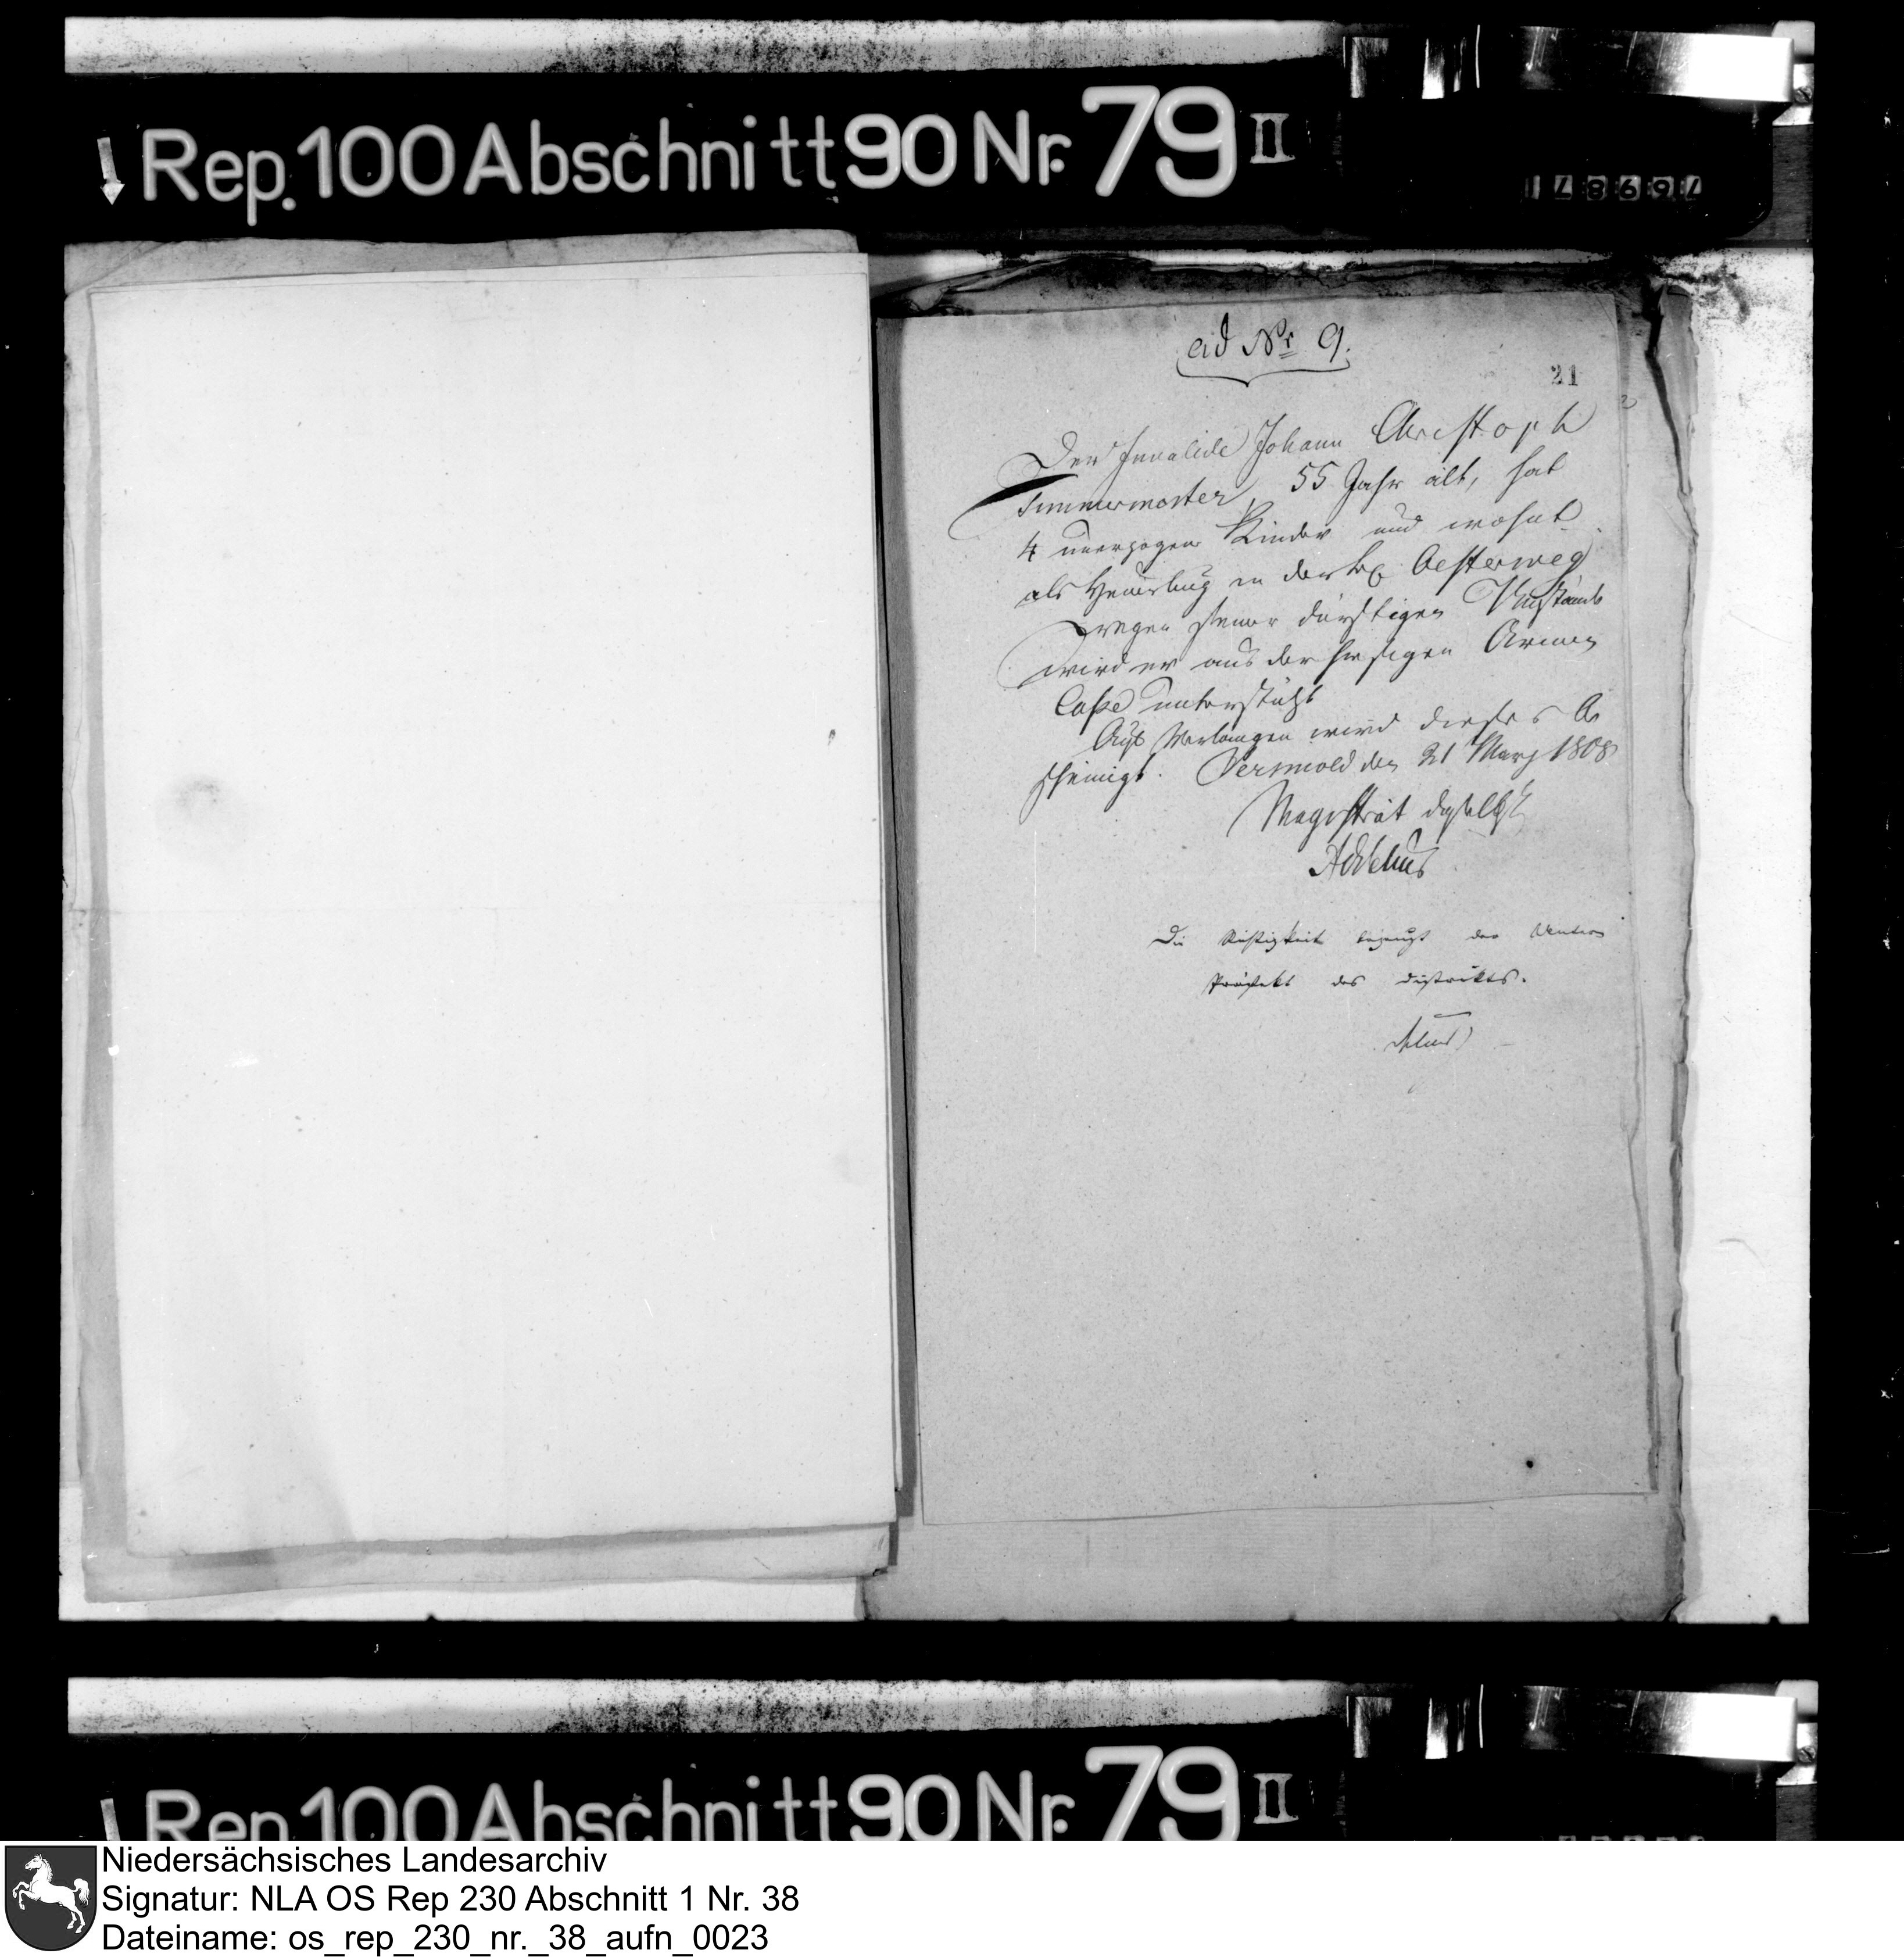 Rep. 100 Abschnitt 90 Nr. 79 II
178697
ad Nr 9.
21
Der Invalide Johann Christoph
Timmermester, 55 Jahr alt, hat
4 unerzogene Kinder und wohnt
als Heuerling in der Oesterweg
wegen seiner dürftigen Umstände
wird er aus der hiesigen Armen
Casse unterstützt
Auf Verlangen wird dieses be
scheinigt. Versmold den 21 Marz 1808
Magistrat daselbst
Die Richtigkeit bezeugt der Unter
Präfekt des Distrikts.
Rep. 100 Abschnitt 90 Nr. 79 II
Niedersächsisches Landesarchiv
Signatur: NLA OS Rep 230 Abschnitt 1 Nr. 38
Dateiname: os_rep_230_nr._38_aufn_0023